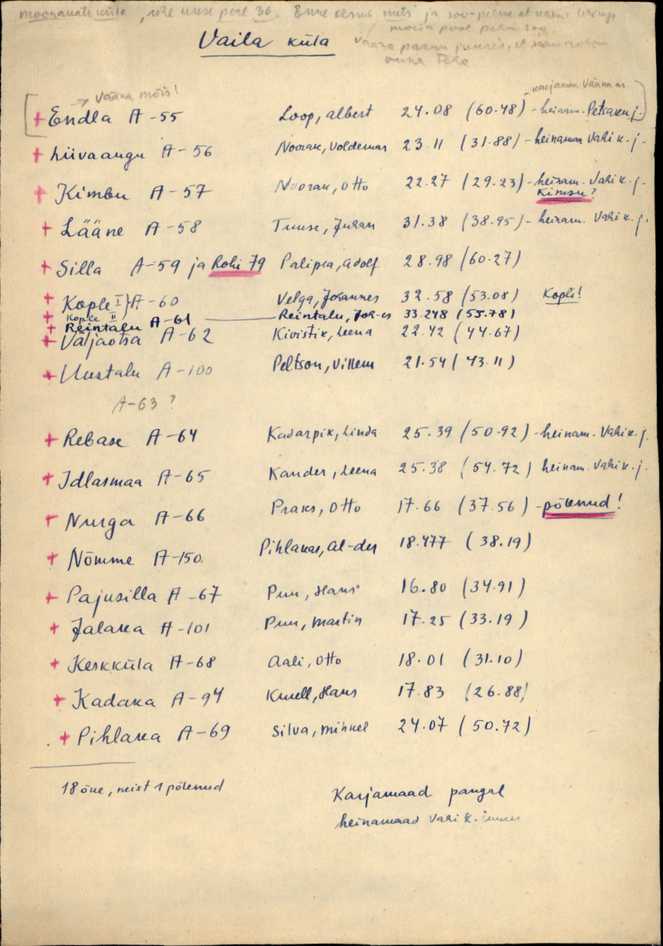 Vaila küla
→ Vääna mõis!
+ Endla A-55 Loop, Albert 24.08 (60.48) - heinam. Petaaru j.
+ Liivaaugu A-56 Noorak, Voldemar 23.11 (31.88) - heinamaa Vahi k. j.
+ Kimbu A-57 Noorak, Otto 22.27 (29.23) - heinam. Vahi k. j.
Kimsu?
+ Lääne A-58 Tuuse, Juhan 31.38 (38.95) - heinam. Vahi k. j.
+ Silla A-59 ja Rohi 79 Palipea, Adolf 28.98 (60.27)
+ Kople I A-60 Velga, Johannes 32.58 (53.08) Kopli!
+ Kople II
+ Reintalu A-61 Reintalu, Joh-es 33.248 (55.781)
+ Väljaotsa A-62 Kivistik, Leena 22.42 (44.67)
+ Uustalu A-100 Peltson, Villem 21.54 (43.11)
A-63 ?
+ Rebase A-64 Kadarpik, Linda 25.39 (50.92) - heinam. Vahi k. j.
+ Idlasmaa A-65 Kander, Leena 25.38 (54.72) heinam. Vahi k. j.
+ Nurga A-66 Praks, Otto 17.66 (37.56) - põlenud!
+ Nõmme A-150 Pihlakas, Al-der 18.477 (38.19)
+ Pajusilla A-67 Puu, Hans 16.80 (34.91)
+ Jalaka A-101 Puu, Martin 17.25 (33.19)
+ Keskküla A-68 Aali, Otto 18.01 (31.10)
+ Kadaka A-94 Kurell, Hans 17.83 (26.88)
+ Pihlaka A-69 Silva, Mihkel 24.07 (50.72)
18 õue, neist 1 põlenud
Karjamaad pangal
heinamaad Vahi k. juures